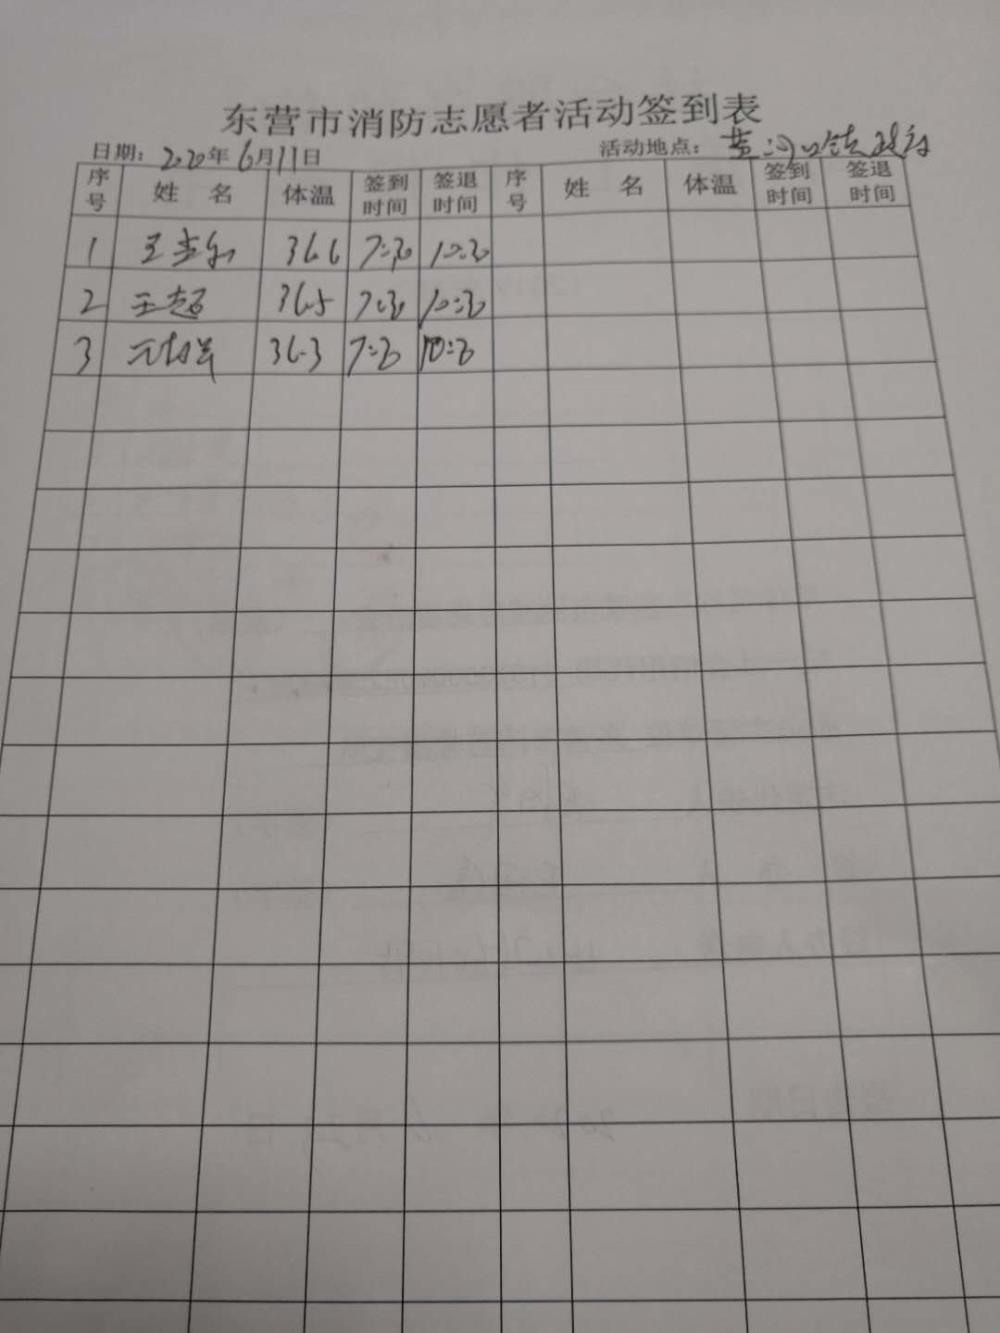 东营市消防志愿者活动签到表
日期：2020年6月11日 活动地点：黄河口镇
序号 姓 名 体温 签到时间 签退时间 序号 姓 名 体温 签到时间 签退时间
1 36.6 7:30 10:30
2 王超 36.5 7:30 10:30
3 36.3 7:30 10:30